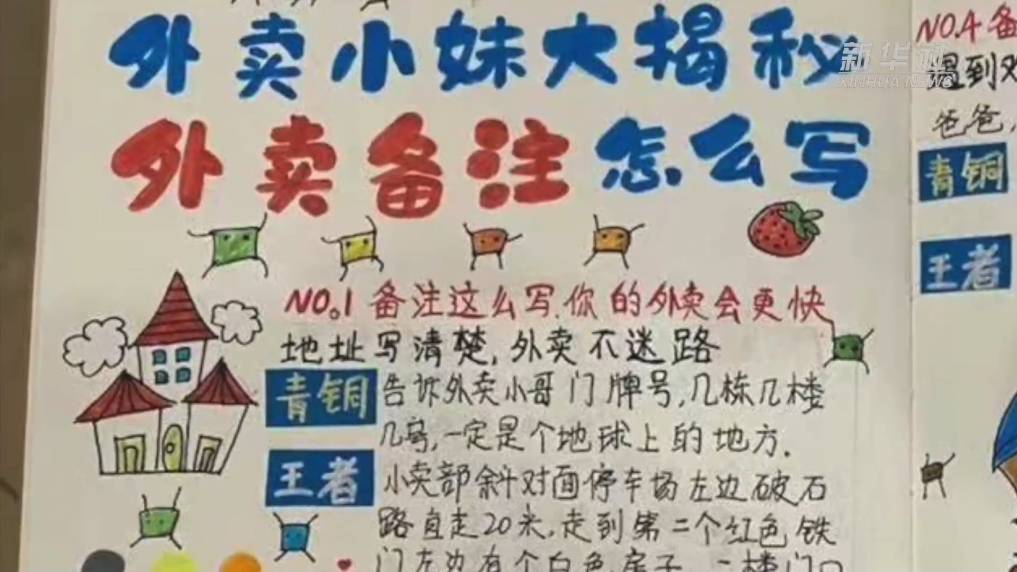 外卖小妹大揭秘
外卖备注怎么写
NO.1 备注这么写,你的外卖会更快
地址写清楚,外卖不迷路
青铜
告诉外卖小哥门牌号,几栋几楼
几号,一定是个地球上的地方.
王者
小卖部斜对面停车场左边破石
路直走20米,走到第二个红色铁
门左边有个白色房子,二楼门口
NO.4 备
遇到
爸爸,
青铜
王者
新华社
XINHUA NEWS